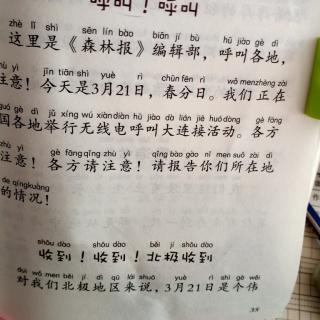 呼叫！呼叫
zhè lǐ shì sēn lín bào biān jí bù hū jiào gè dì
这里是《森林报》编辑部，呼叫各地，
zhù yì jīn tiān shì yuè rì chūn fēn rì wǒ men zhèng zài
注意！今天是3月21日，春分日。我们正在
guó gè dì jǔ xíng wú xiàn diàn hū jiào dà lián jiē huó dòng gè fāng
国各地举行无线电呼叫大连接活动。各方
zhù yì gè fāng qǐng zhù yì qǐng bào gào nǐ men suǒ zài dì
注意！各方请注意！请报告你们所在地
de qíng kuàng
的情况！
shōu dào shōu dào běi jí shōu dào
收到！收到！北极收到
duì wǒ men běi jí dì qū lái shuō yuè rì shì gè wěi
对我们北极地区来说，3月21日是个伟